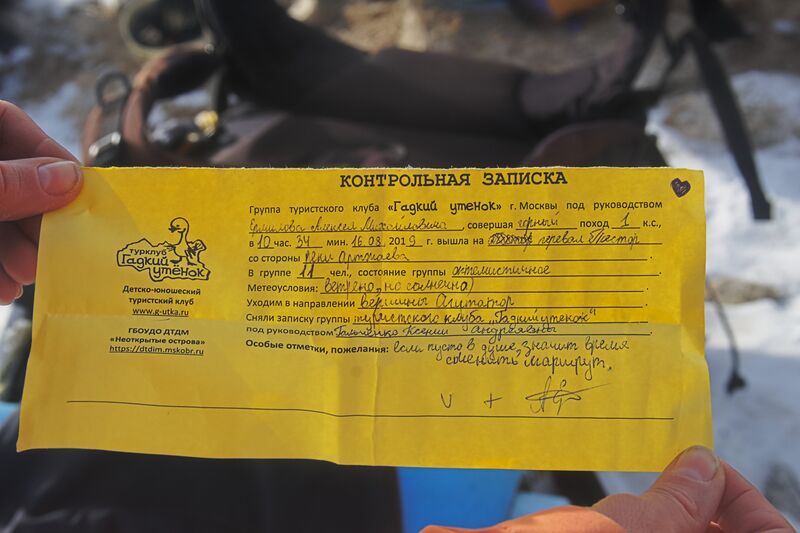 КОНТРОЛЬНАЯ ЗАПИСКА
Группа туристского клуба «Гадкий утенок» г. Москвы под руководством
Ермилова Алексея Михайловича, совершая горный поход 1 к.с.,
в 10 час. 34 мин. 16.08.2019 г. вышла на перевал Тестор
со стороны реки
В группе 11 чел., состояние группы оптимистичное
Метеоусловия: ветрено, но солнечно)
Уходим в направлении вершины
Сняли записку группы: туристского клуба "Гадкий утенок"
под руководством Ксении Андреевны
Особые отметки, пожелания: если пусто в душе, значит время
сменить маршрут.
V +
турклуб
Гадкий
утёнок
Детско-юношеский
туристский клуб
www.g-utka.ru
ГБОУДО ДТДМ
«Неоткрытые острова»
https://dtdim.mskobr.ru